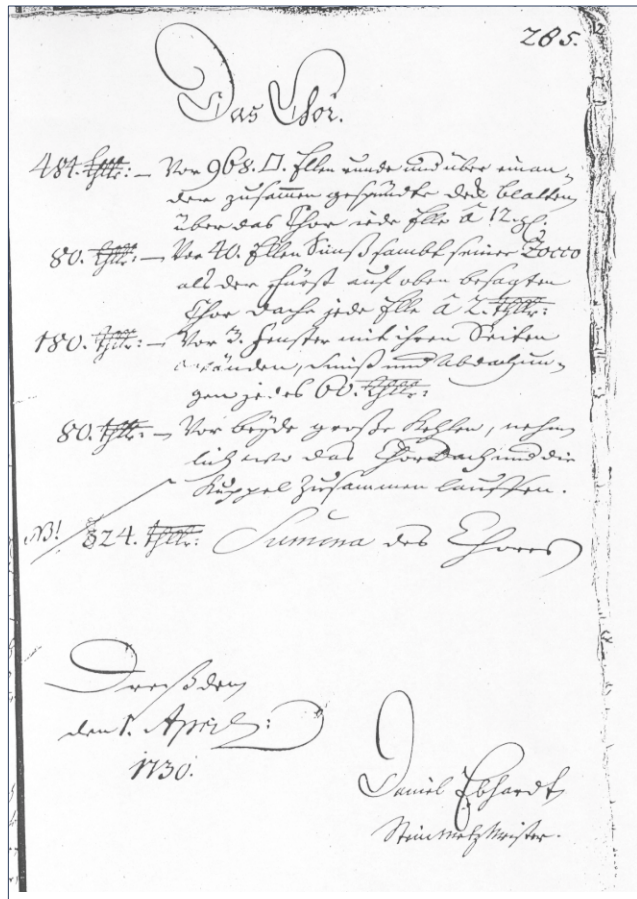 285.
Das Chor.
484. thlr: – Vor 968. □. Ellen runde und über einan-
der zusammen gespündte Blatten
über das Chor jede Elle â 12. gl.
80. thlr: – Vor 40. Ellen Simß sambt seiner Zocco
als der Fürst auf oben besagten
Chor Dache jede Elle â 2. thlr:
180. thlr: – Vor 3. Fenster mit ihren Seiten
wänden, Simß und Abdachun-
gen jedes 60. thlr:
80. thlr: – Vor beyde große Kehlen, nehm
lich wo das Chor Dach und die
Kuppel zusammen lauffen.
NB! 824. thlr: Summa des Chores
Dreßden
den 1. April:
1730.
Daniel Ebhardt
Steinmetz Meister.